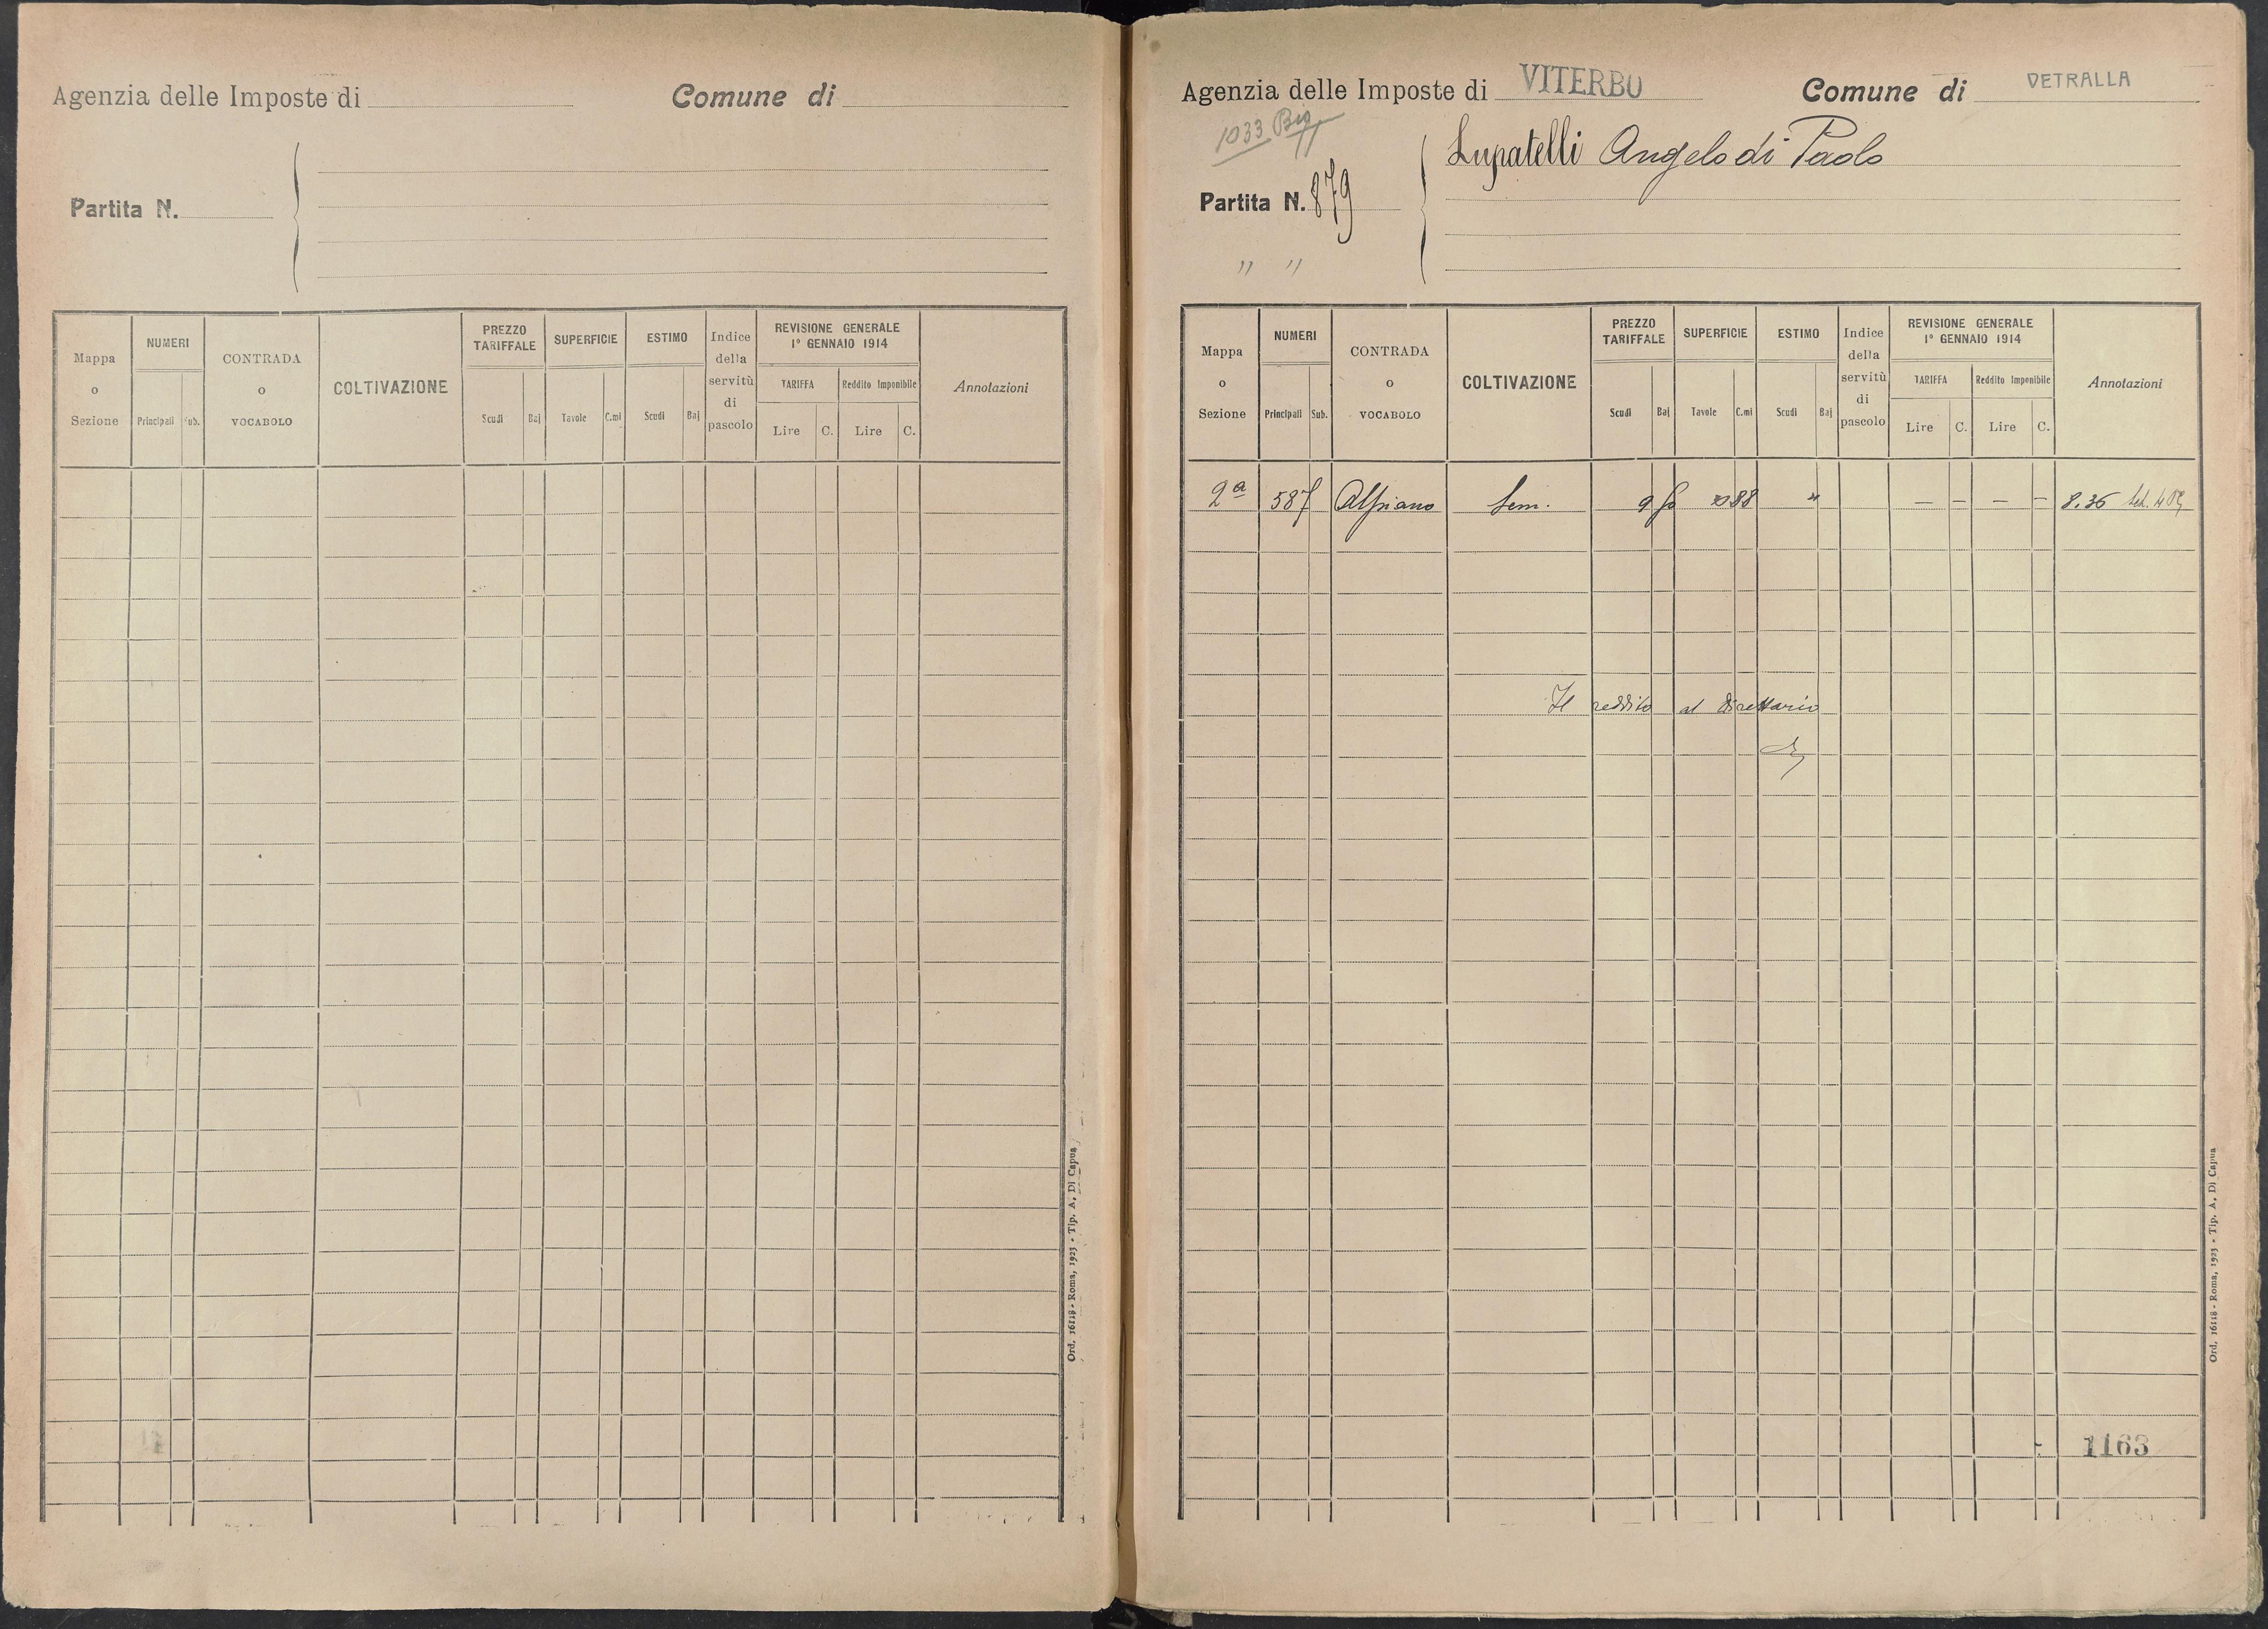 Agenzia delle Imposte di
Comune di
Partita N.
Mappa o Sezione
NUMERI
Principali
Sub.
CONTRADA o VOCABOLO
COLTIVAZIONE
PREZZO TARIFFALE
Scudi
Baj
SUPERFICIE
Tavole
C.mi
ESTIMO
Scudi
Baj
Indice della servitù di pascolo
REVISIONE GENERALE
1° GENNAIO 1914
TARIFFA
Reddito Imponibile
Lire
C.
Lire
C.
Annotazioni
Ord. 16118 - Roma, 1923 - Tip. A. Di Capua
Agenzia delle Imposte di VITERBO
Comune di VETRALLA
1033
Lupatelli Angelo di Paolo
Partita N. 879
" "
Mappa o Sezione
NUMERI
Principali
Sub.
CONTRADA o VOCABOLO
COLTIVAZIONE
PREZZO TARIFFALE
Scudi
Baj
SUPERFICIE
Tavole
C.mi
ESTIMO
Scudi
Baj
Indice della servitù di pascolo
REVISIONE GENERALE
1° GENNAIO 1914
TARIFFA
Reddito Imponibile
Lire
C.
Lire
C.
Annotazioni
2ª 587 Alpiano Sem. 9 88 " — — — — 8.36
Il reddito al direttario
1163
Ord. 16118 - Roma, 1923 - Tip. A. Di Capua